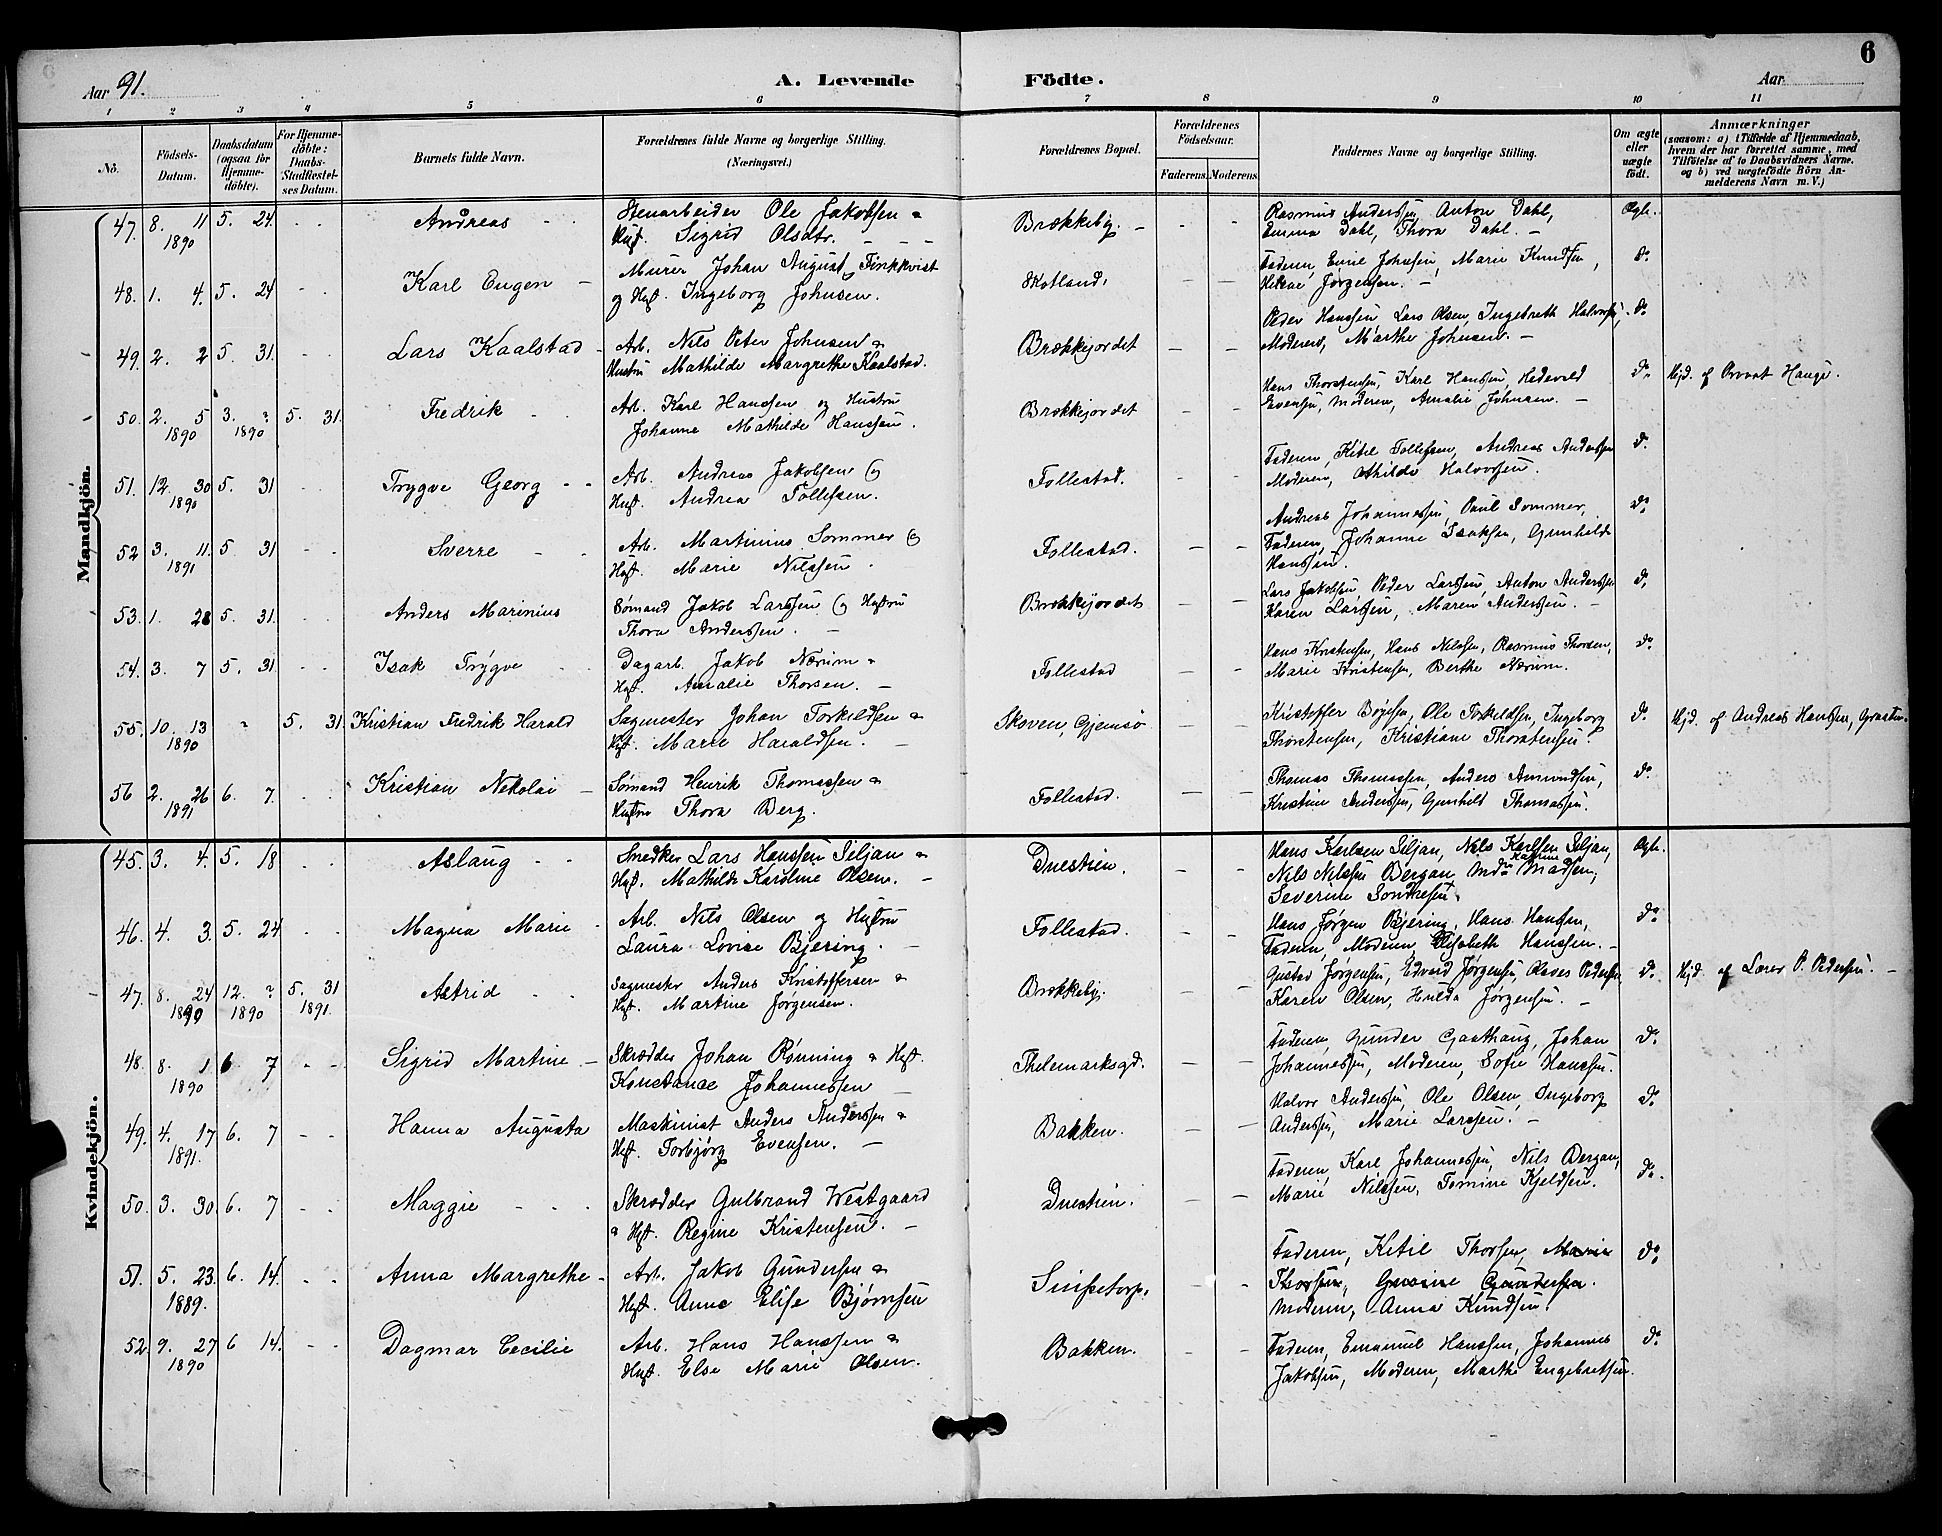 6
Aar 91.
A. Levende Födte.
Aar
1 2 3 4 5 6 7 8 9 10 11
No.
Födsels-Datum.
Daabsdatum (ogsaa for Hjemmedöbte).
For Hjemmedöbte: Daabs-Stadfæstelses Datum.
Barnets fulde Navn.
Forældrenes fulde Navne og borgerlige Stilling.
(Næringsvei.)
Forældrenes Bopæl.
Forældrenes Födselsaar.
Faderens. Moderens.
Faddernes Navne og borgerlige Stilling.
Om ægte eller uægte födt.
Anmærkninger
(saasom: a) i Tilfælde af Hjemmedaab, hvem der har forrettet samme, med Tilföielse af to Daabsvidners Navne, og b) ved uægtefödte Börn Anmelderens Navn m. V.)
Mandkjön.
47. 8. 11 1890 5. 24. - - Andreas - - Stenarbeider Ole Jakobsen & Hust. Sigrid Olsdtr. - - - Brækkeby. - - - Rasmus Anderssen, Anton Dahl, Emma Dahl, Thora Dahl. - Ægte.
48. 1. 4. 5. 24 - - Karl Eugen - Murer Johan August Finkkvist og Hust. Ingeborg Johnsen. Skotland, - - Faderen, Emil Johnsen, Marie Knudsen, Helene Jørgensen. - do
49. 2. 2 5. 31. - - Lars Kaalstad - Arb. Nils Peter Johnsen & Hustru Mathilde Margrethe Kaalstad. Brækkejordet - - Peder Hanssen, Lars Olsen, Ingebreth Halvorsen, Moderen, Marthe Johnsen. - do
50. 2. 5 1890 3. ? 1890 5. 31. Fredrik - - Arb. Karl Hanssen og Hustru Johanne Mathilde Hanssen. Brækkejordet - - Hans Thorstensen, Karl Hanssen, Hedevald Evensen, Moderen, Amalie Johnsen. - do Hjd. af Provst Hauge.
51. 12. 30 1890 5. 31 - - Trygve Georg - - Arb. Andreas Jakobsen og Hust. Andrea Tollefsen. Follestad. - - Faderen, Kitil Tollefsen, Andreas Anderssen, Moderen, Athilde Halvorsen. do
52 3. 11. 1891 5. 31 - - Sverre - - Arb. Martinius Sommer og Hust. Marie Nilssen. Follestad. - - Andreas Johannessen, Paul Sommer, Faderen, Johanne Isaksen, Gunhilde Hanssen. do
53. 1. 28 5. 31. - - Anders Marinius Sømand Jakob Larssen og Hustru Thora Anderssen. - Brækkejordet - - Lars Jakobsen, Peder Larssen, Anton Anderssen, Karen Larssen, Maren Anderssen. - do
54. 3. 7 5. 31 - - Isak Trygve - - Dagarb. Jakob Nærum & Hust. Amalie Thorsen. - Follestad - - Hans Kristensen, Hans Nilssen, Rasmus Thorsen, Marie Kristensen, Berthe Nærum. do
55. 10. 13 1890 - 5. 31. Kristian Fredrik Harald Sagmester Johan Torkildsen & Hust. Marie Haraldsen. - Skoven, Gjemsø - - Kristoffer Boyesen, Ole Torkildsen, Ingeborg Thorstensen, Kristiane Thorstensen. do Hjd. af Andreas Hanssen,
56 2. 26 1891 6. 7. - - Kristian Nekolai - Sømand Henrik Thomassen & Hustru Thora Berg. Follestad. - - Thomas Thomassen, Anders Amundsen, Kristine Anderssen, Gunhild Thomassen. do
Kvindekjön.
45. 3. 4. 5. 18 - - Aslaug - - Snedker Lars Hanssen Siljan & Hust. Mathilde Karoline Olsen. - Duestien. - - Hans Karlsen Siljan, Nils Karlsen Siljan, Nils Nilssen Bergan, Mdm Kathrine Madsen, Severine Sondresen. Ægte.
46. 4. 3. 5. 24 - - Magna Marie - Arb. Nils Olsen og Hustru Laura Lovise Bjering. - Follestad. - - Hans Jørgen Bjering, Hans Hanssen, Faderen, Moderen, Elisabeth Hanssen. - do
47. 8. 24 1890 12. ? 1890 5. 31 1891. Astrid - - Sagmester Anders Kristoffersen & Hust. Martine Jørgensen. Brækkeby. - - Gustav Jørgensen, Edvard Jørgensen, Olaves Pedersen, Karen Olsen, Hulda Jørgensen. - do Hjd. af Lærer P. Pedersen. -
48. 8. 1 1890 6. 7 - - Sigrid Martine - Skrædder Johan Rønning & Hust. Konstance Johannessen Thelemarksgd. - - Faderen, Gunder Gasthaug, Johan Johannessen, Moderen, Sofie Hanssen. do
49. 4. 17 1891. 6. 7 - - Hanna Augusta Maskinist Anders Anderssen & Hust. Torbjørg Evensen. - Bakken. - - Halvor Anderssen, Ole Olsen, Ingeborg Anderssen, Marie Larssen. - do
50. 3. 30. 6. 7 - - Maggie - - - Skrædder Gulbrand Westgaard & Hust. Regine Kristensen. - Duestien. - - Faderen, Karl Johannessen, Nils Bergan, Marie Nilssen, Tomine Kjeldsen. do
51. 5. 23. 1889. 6. 14. - - Anna Margrethe - Arb. Jakob Gundersen & Hust. Anne Elise Bjørnsen - - Faderen, Ketil Thorsen, Maria Thorsen, Gundersen. Moderen, Anna Knudsen. do
52 9. 27 1890 6 14. - - Dagmar Cecilie Arb. Hans Hanssen & Hust. Else Marie Olsen. Bakken. - - Faderen, Emanuel Hanssen, Johannes Jakobsen, Moderen, Marthe Engebretsen. do